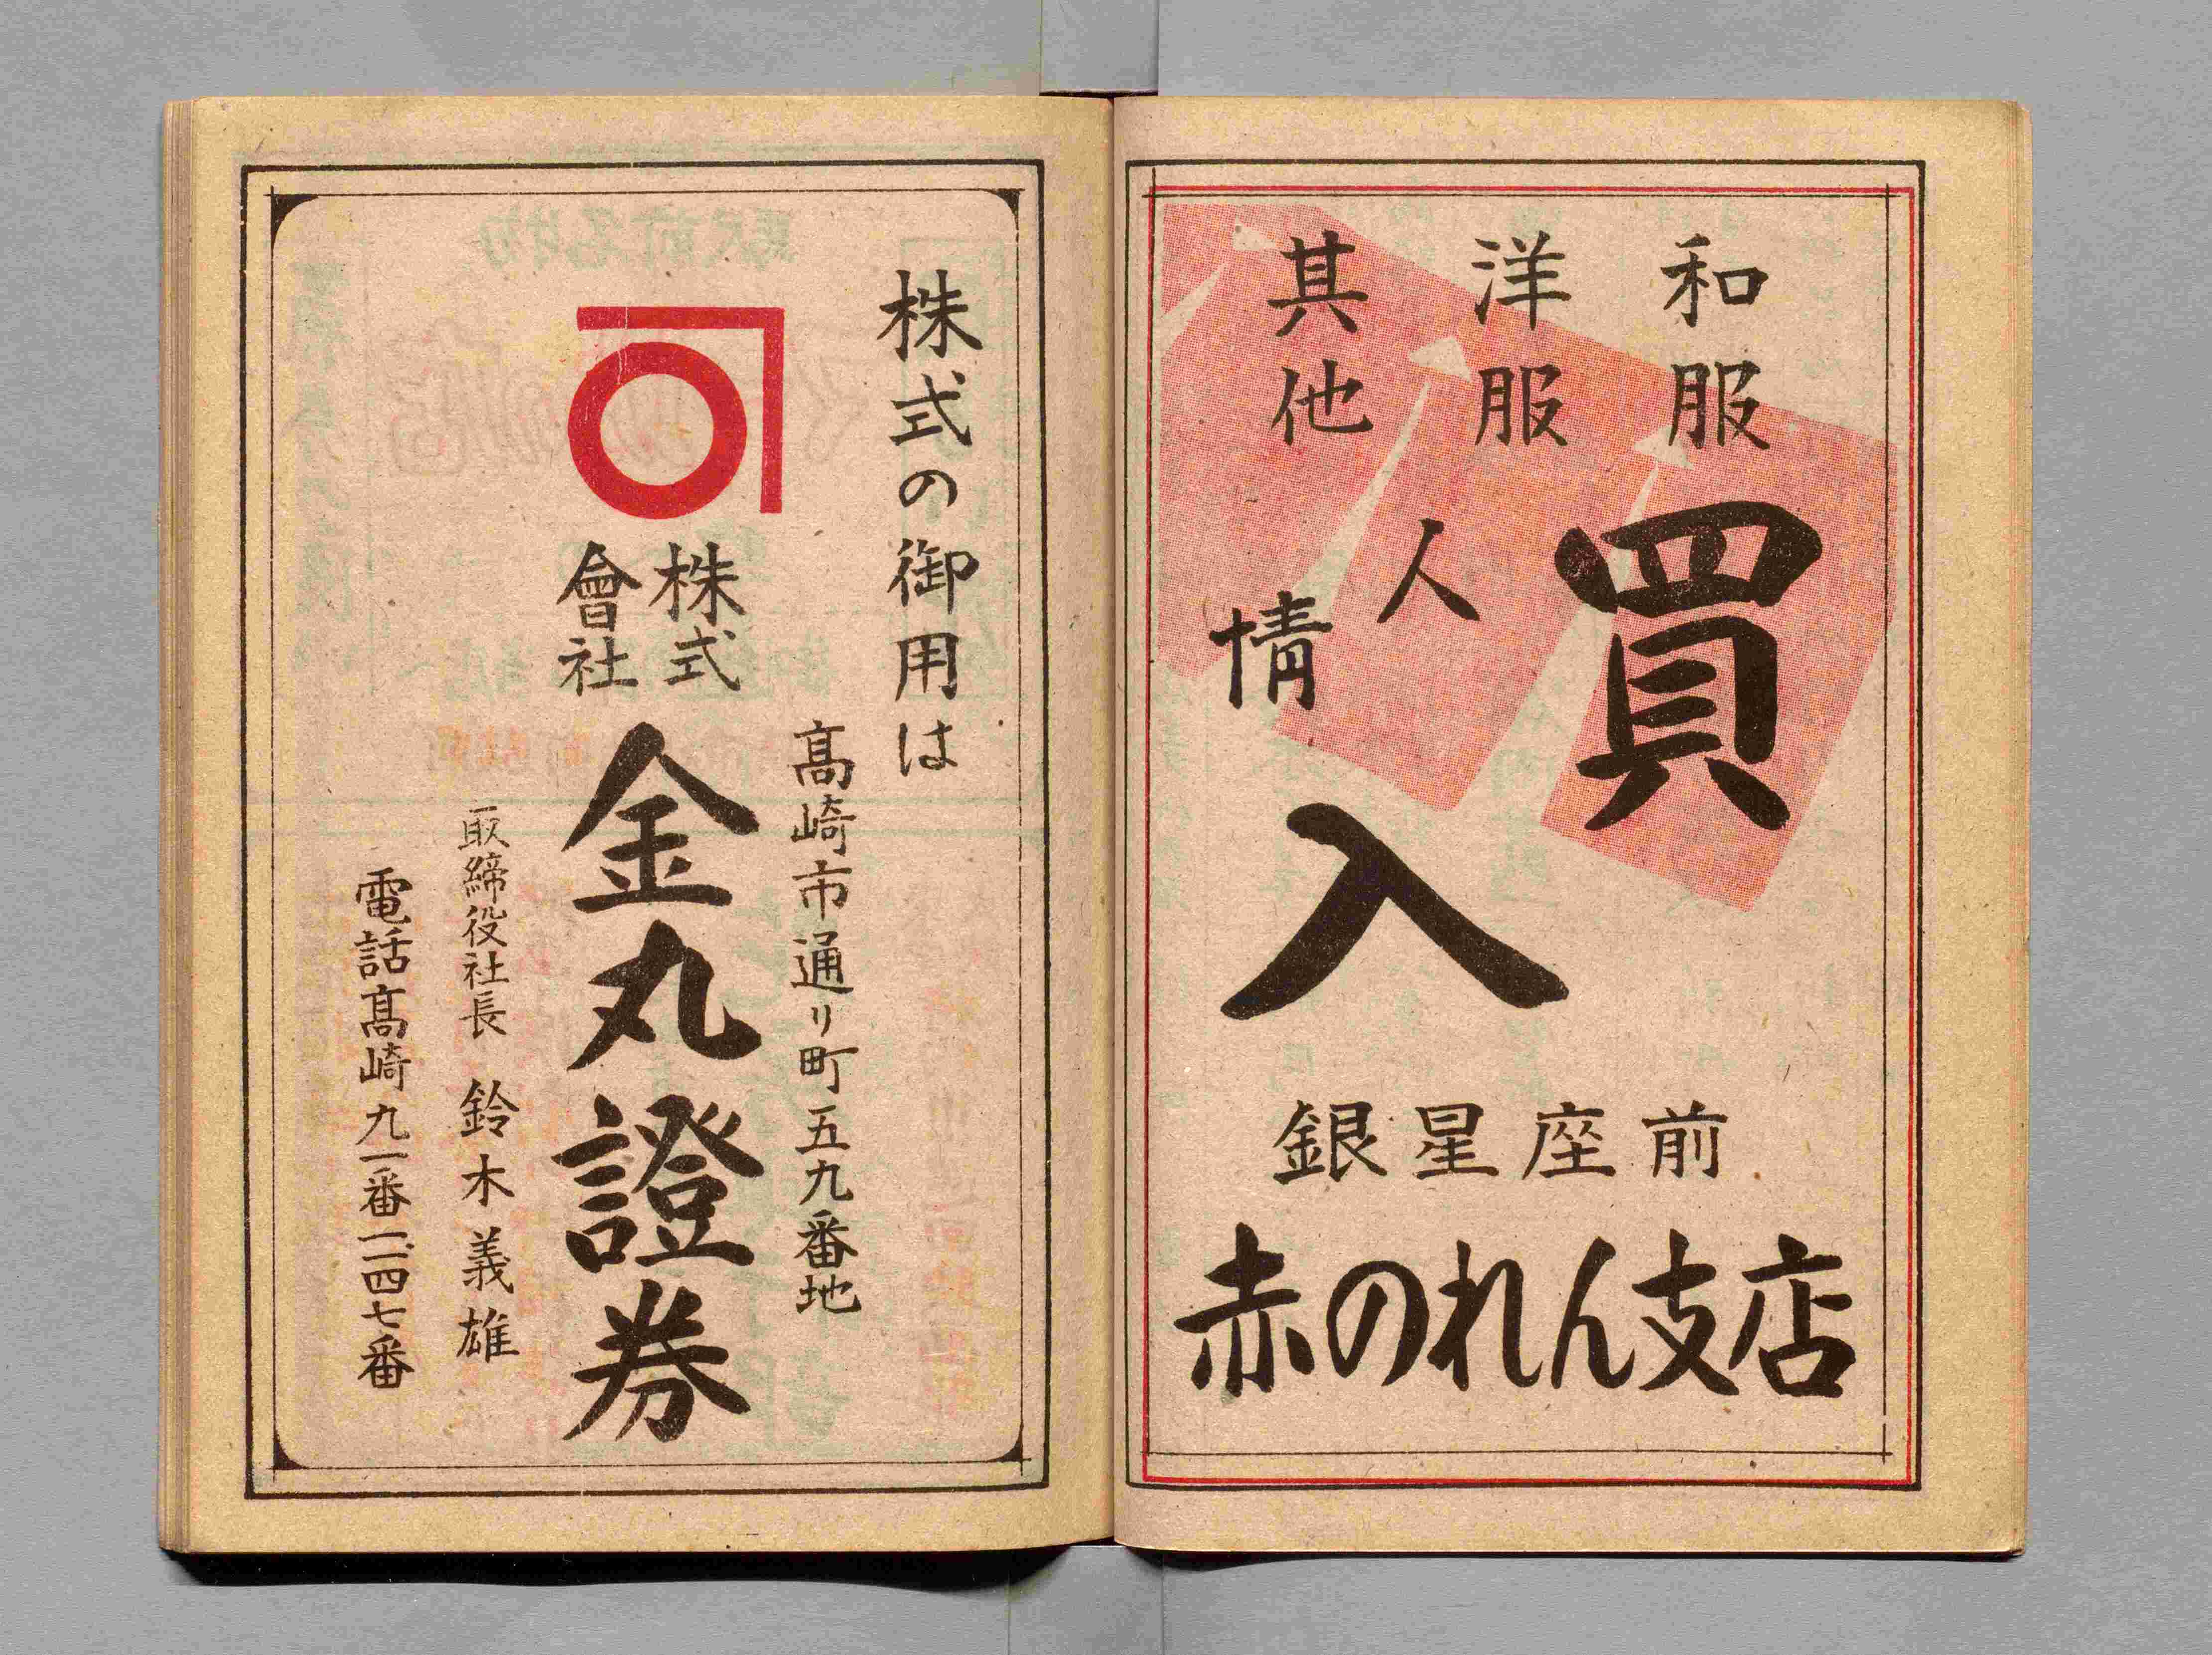 和服
洋服
其他
買入
人情
銀星座前
赤のれん支店
株式の御用は
高崎市通リ町五九番地
株式會社
金丸證券
取締役社長 鈴木義雄
電話髙崎九一番